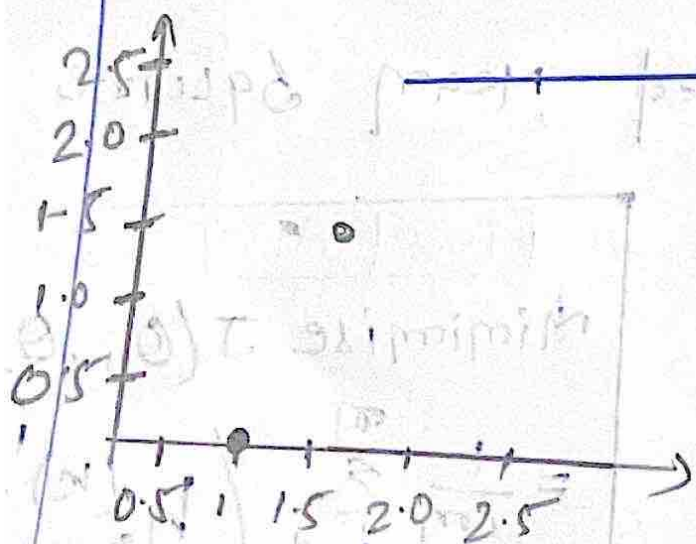 2.5
2.0
1.5
1.0
0.5
0.5 1 1.5 2.0 2.5